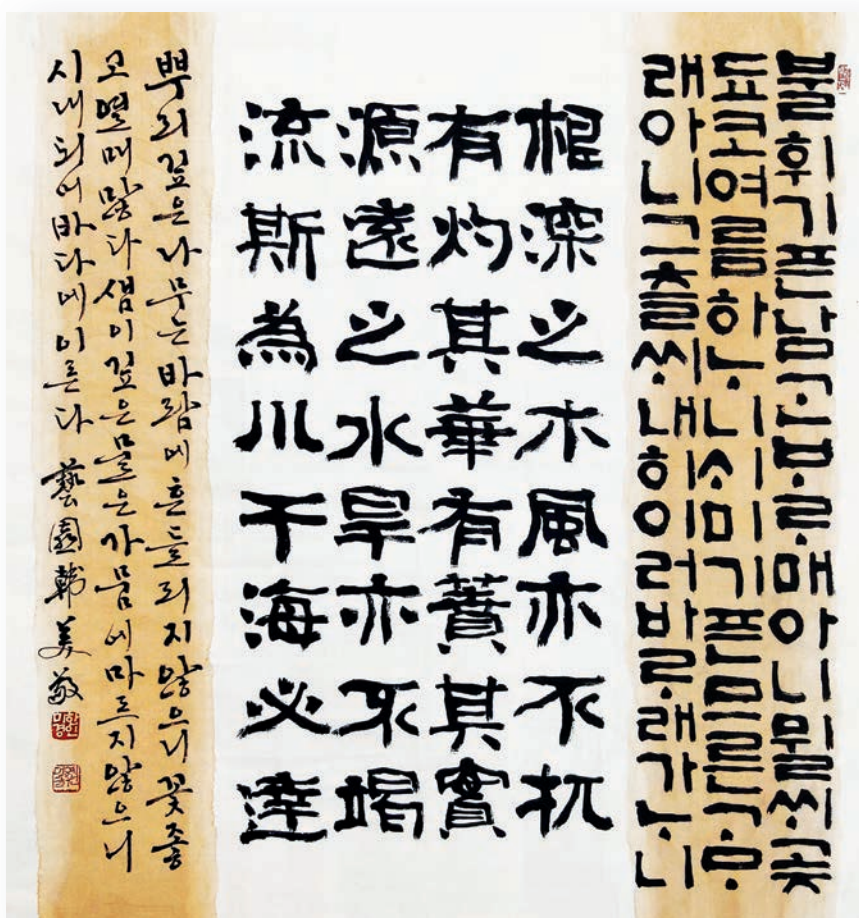 불휘기픈남ᄀᆞᆫᄇᆞᄅᆞ매아니뮐ᄊᆡ곶
됴코여름하ᄂᆞ니ᄉᆡ미기픈므른ᄀᆞᄆᆞ
래아니그츨ᄊᆡ내히이러바ᄅᆞ래가ᄂᆞ니
根深之木風亦不扤
有灼其華有蕡其實
源遠之水旱亦不竭
流斯為川于海必達
뿌리깊은나무는바람에흔들리지않으니꽃좋
고열매많다샘이깊은물은가뭄에마르지않으니
시내되어바다에이른다 藝園韓美敬